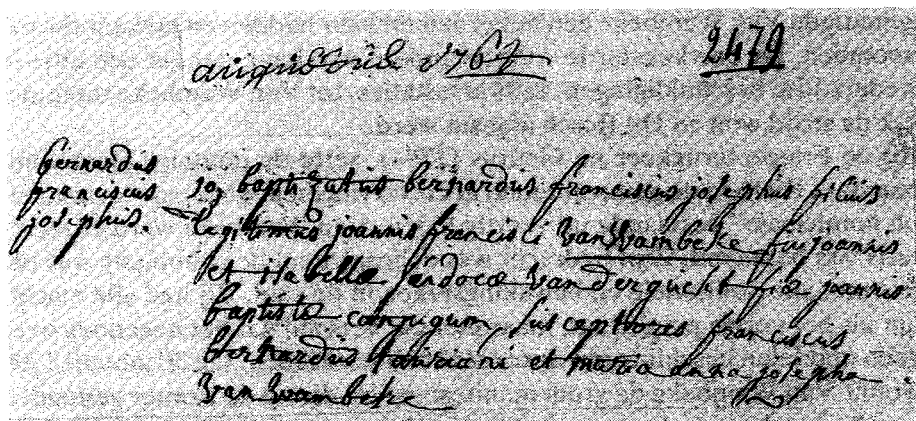 augusti 1764
2479
bernardus
franciscus
josephus.
10, baptizatus bernardus franciscus josephus filius
legitimus joannis francisci van Wambeke fii joannis
et isabellæ judocæ van der gucht fiæ joannis
baptistæ conjugum, susceptores franciscus
bernardus et maria anna josepha
van wambeke